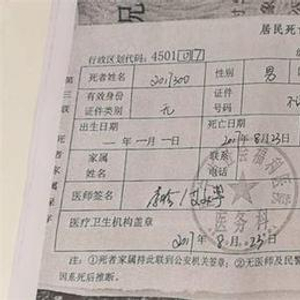 居民死
行政区划代码：4501
第三联
死者家属保存
死者姓名 2017300 性别 男
有效身份证件类别 无 证件号码 不
出生日期 死亡日期
— 年 — 月 — 日 2017年8月23日
家属姓名 联系电话
医师签名
医疗卫生机构盖章
2017年8月23日
福利医
医务科
注：①死者家属持此联到公安机关签章；②无医师及民警
因系死后推断。